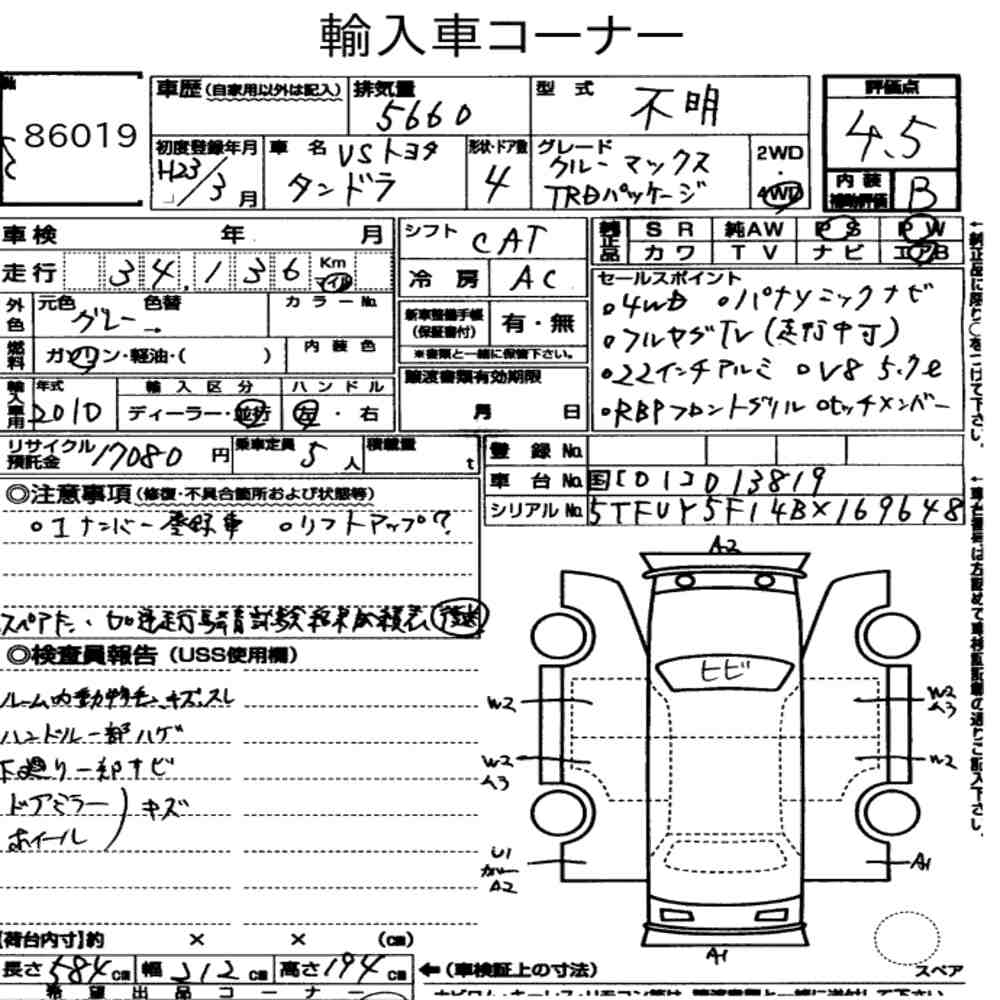 輸入車コーナー
86019
車歴(自家用以外は記入)
排気量
5660
型式
不明
評価点
4.5
初度登録年月
H23/3月
車名
USトヨタ
タンドラ
形状・ドア数
4
グレード
クルーマックス
TRDパッケージ
2WD
・
4WD
内装
補助評価
B
車検 年 月
シフト
CAT
純正品
SR 純AW PS PW
カワ TV ナビ エアB
走行 34,136 Km マイル
冷房 AC
セールスポイント
外色
元色 色替
グレー→
カラーNo.
新車整備手帳
(保証書付)
有・無
※書類と一緒に保管下さい。
○4WD ○パナソニックナビ
○フルセグTV(走行中可)
燃料
ガソリン・軽油・( )
内装色
○22インチアルミ ○V8 5.7ℓ
譲渡書類有効期限
月 日
輸入車用
年式
2010
輸入区分
ディーラー・並行
ハンドル
左・右
○RBPフロントグリル ○ヒッチメンバー
リサイクル
預託金
17080円
乗車定員
5人
積載量
t
登録No.
車台No. 国[01]013819
シリアルNo. 5TFUY5F14BX169648
◎注意事項(修復・不具合箇所および状態等)
○1ナンバー登録車 ○リフトアップ?
◎検査員報告(USS使用欄)
ルーム内動物毛、キズ、スレ
ハンドル一部ハゲ
下廻り一部サビ
ドアミラー
ホイール
キズ
A2
ヒビ
W2
W2
A3
W2
A3
W2
U1
A2
A1
A1
【荷台内寸】約 × × (cm)
長さ584cm 幅212cm 高さ194cm
←(車検証上の寸法)
スペア
希望出品コーナー